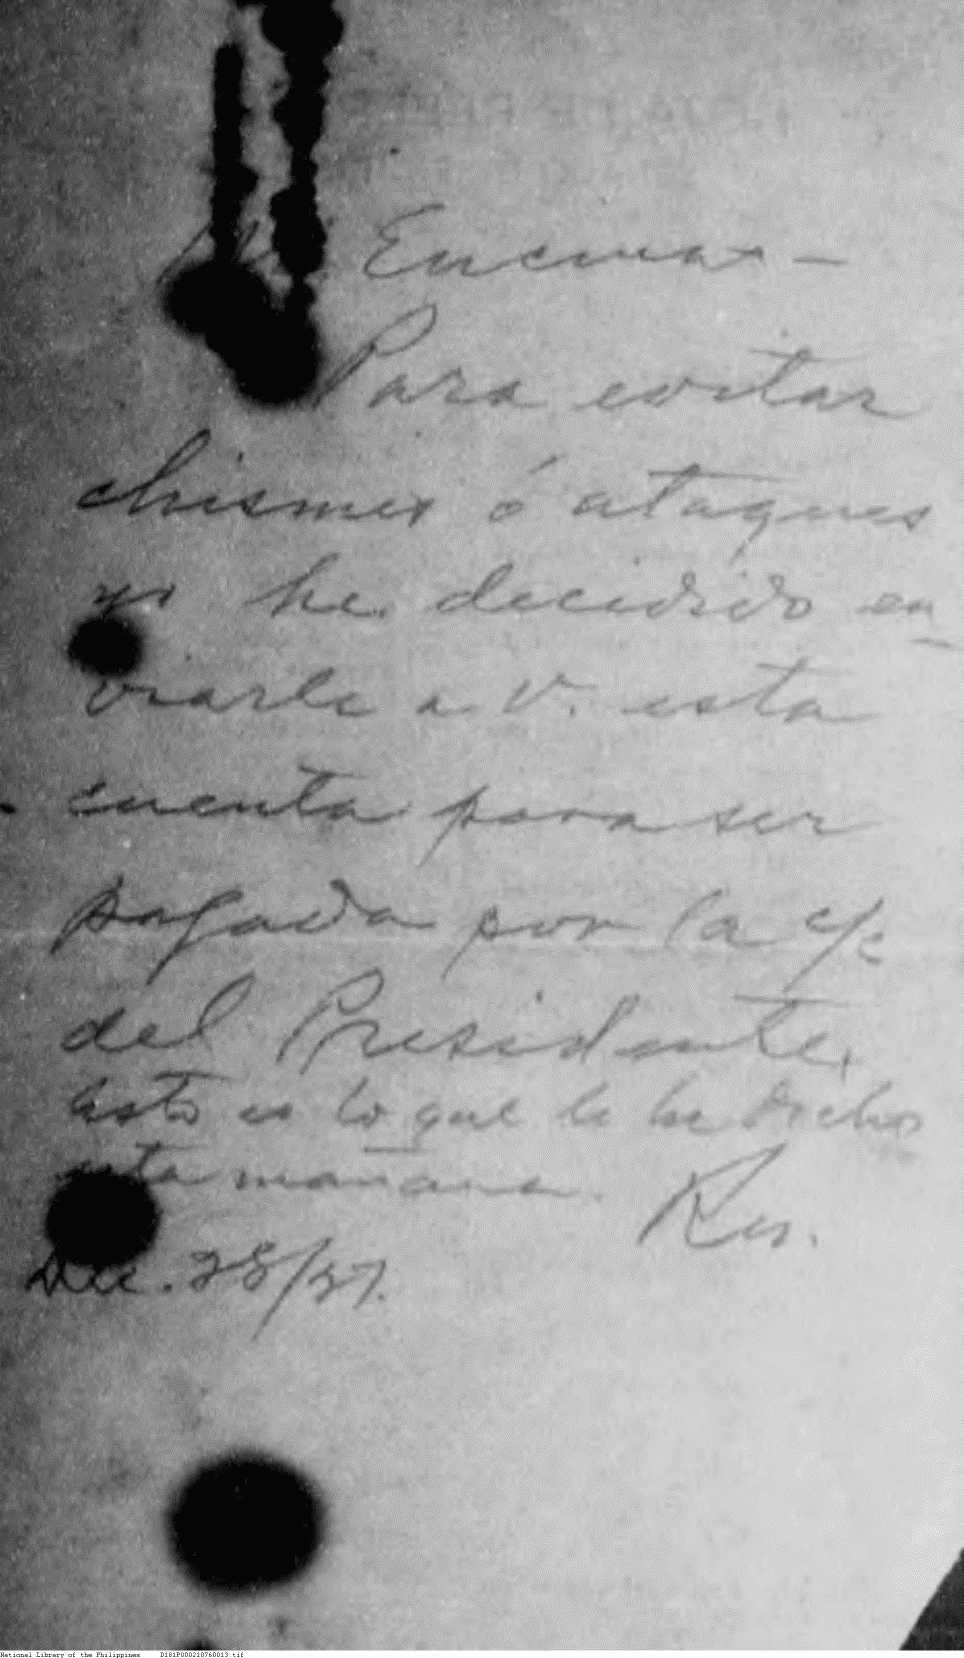 Encina -
Para evitar
chismes ó ataques
yo he decidido en-
viarle a V. esta
cuenta para ser
pagada por la c/c
del Presidente.
Esto es lo que le he dicho
esta mañana. Res.
Dec. 28/37.
National Library of the Philippines D181P000210760013.tif